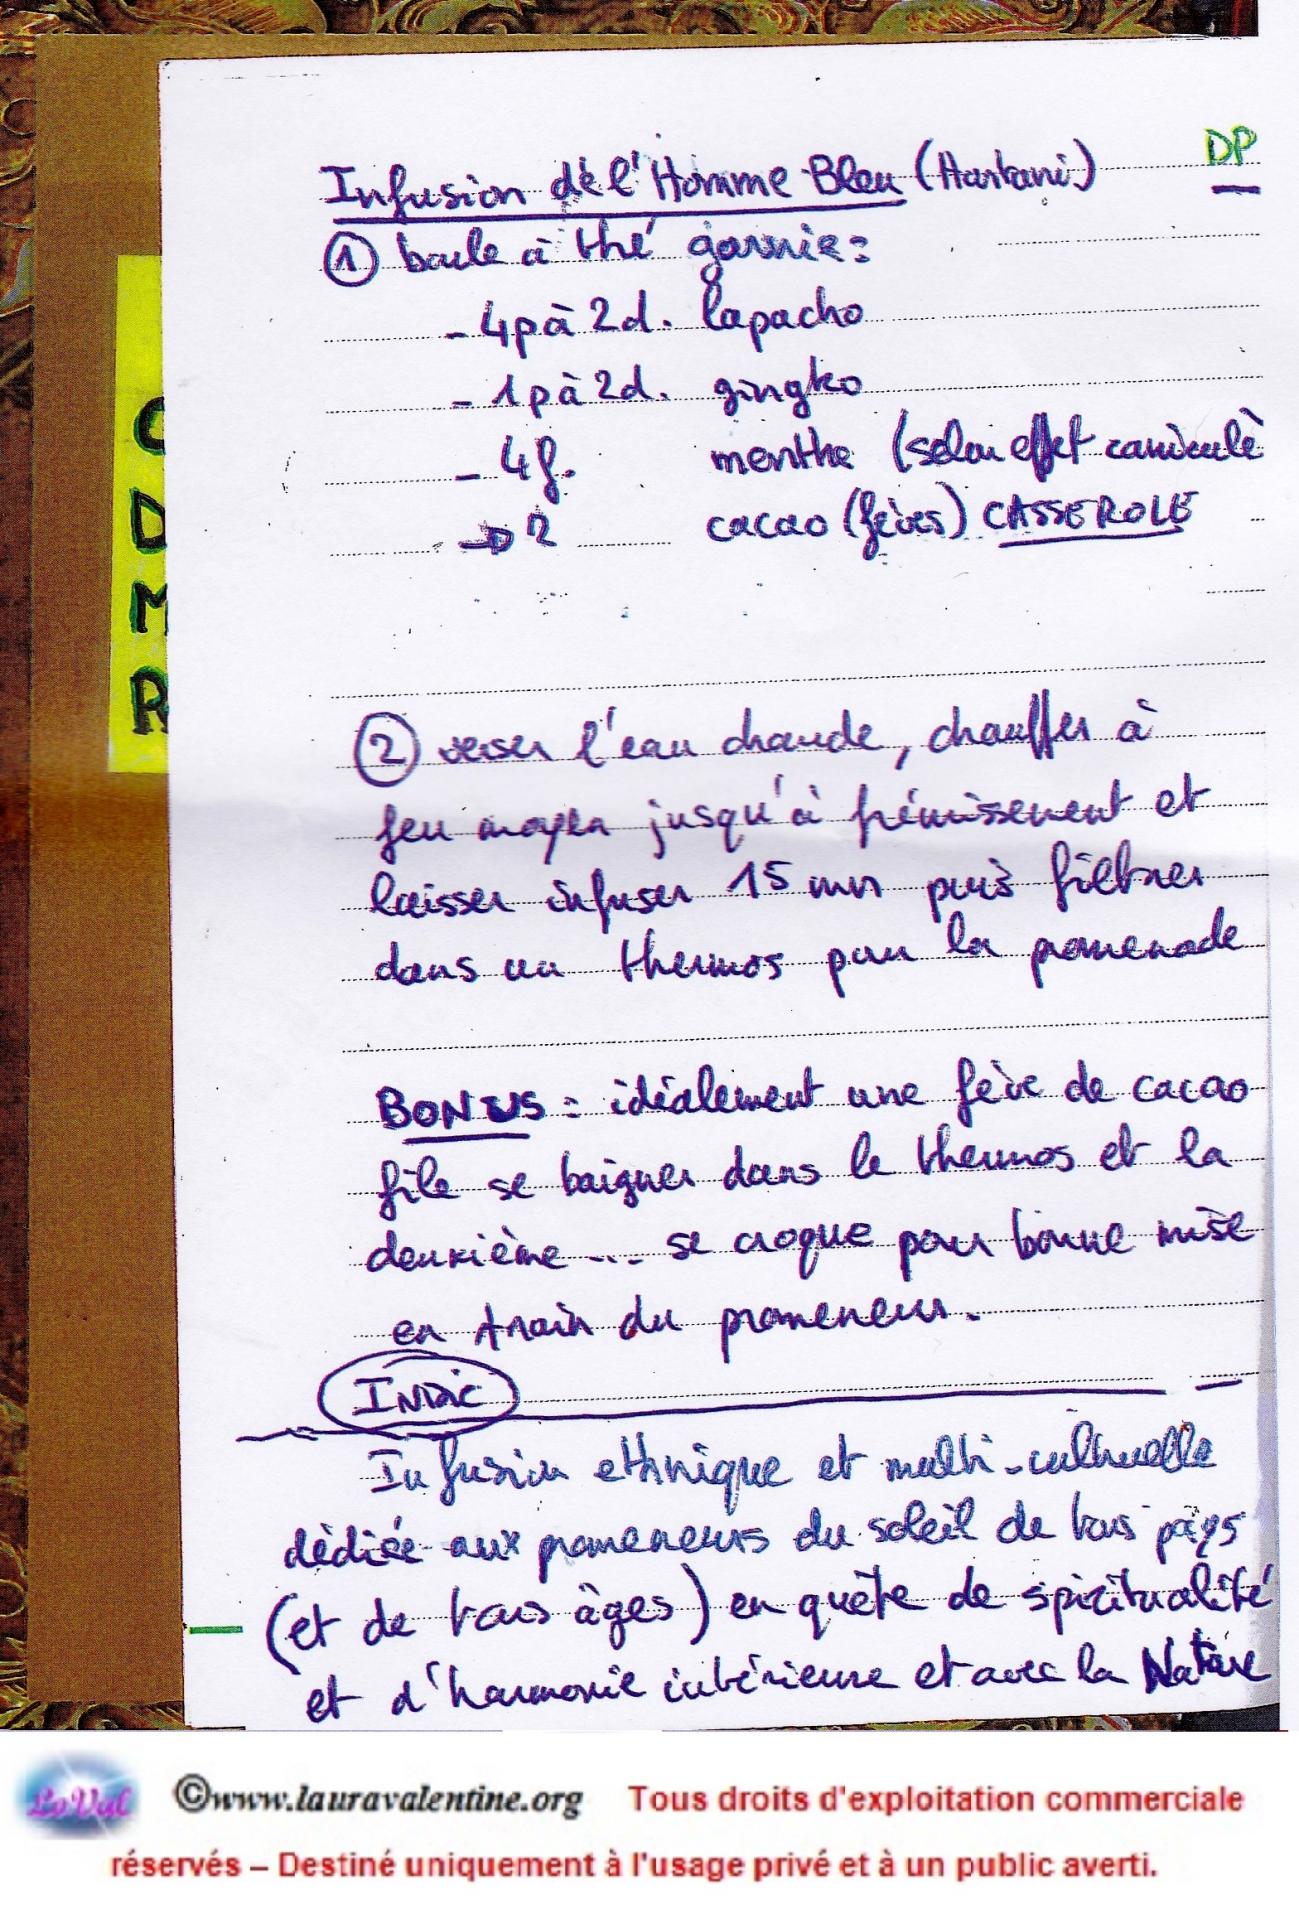 DP
Infusion de l'Homme Bleu (Hartani)
① boule à thé garnie:
- 4p à 2d. lapacho
- 1p à 2d. gingko
- 4f. menthe (selon effet canicule
→ 2 cacao (fèves) CASSEROLE
C
D
M
R
② verser l'eau chaude, chauffer à
feu moyen jusqu'à frémissement et
laisser infuser 15 mn puis filtrer
dans un thermos pour la promenade
BONUS : idéalement une fève de cacao
file se baigner dans le thermos et la
deuxième ... se croque pour bonne mise
en train du promeneur.
INDIC
Infusion ethnique et multi-culturelle
dédiée aux promeneurs du soleil de tous pays
(et de tous âges) en quête de spiritualité
et d'harmonie intérieure et avec la Nature
LoVal ©www.lauravalentine.org Tous droits d'exploitation commerciale
réservés – Destiné uniquement à l'usage privé et à un public averti.